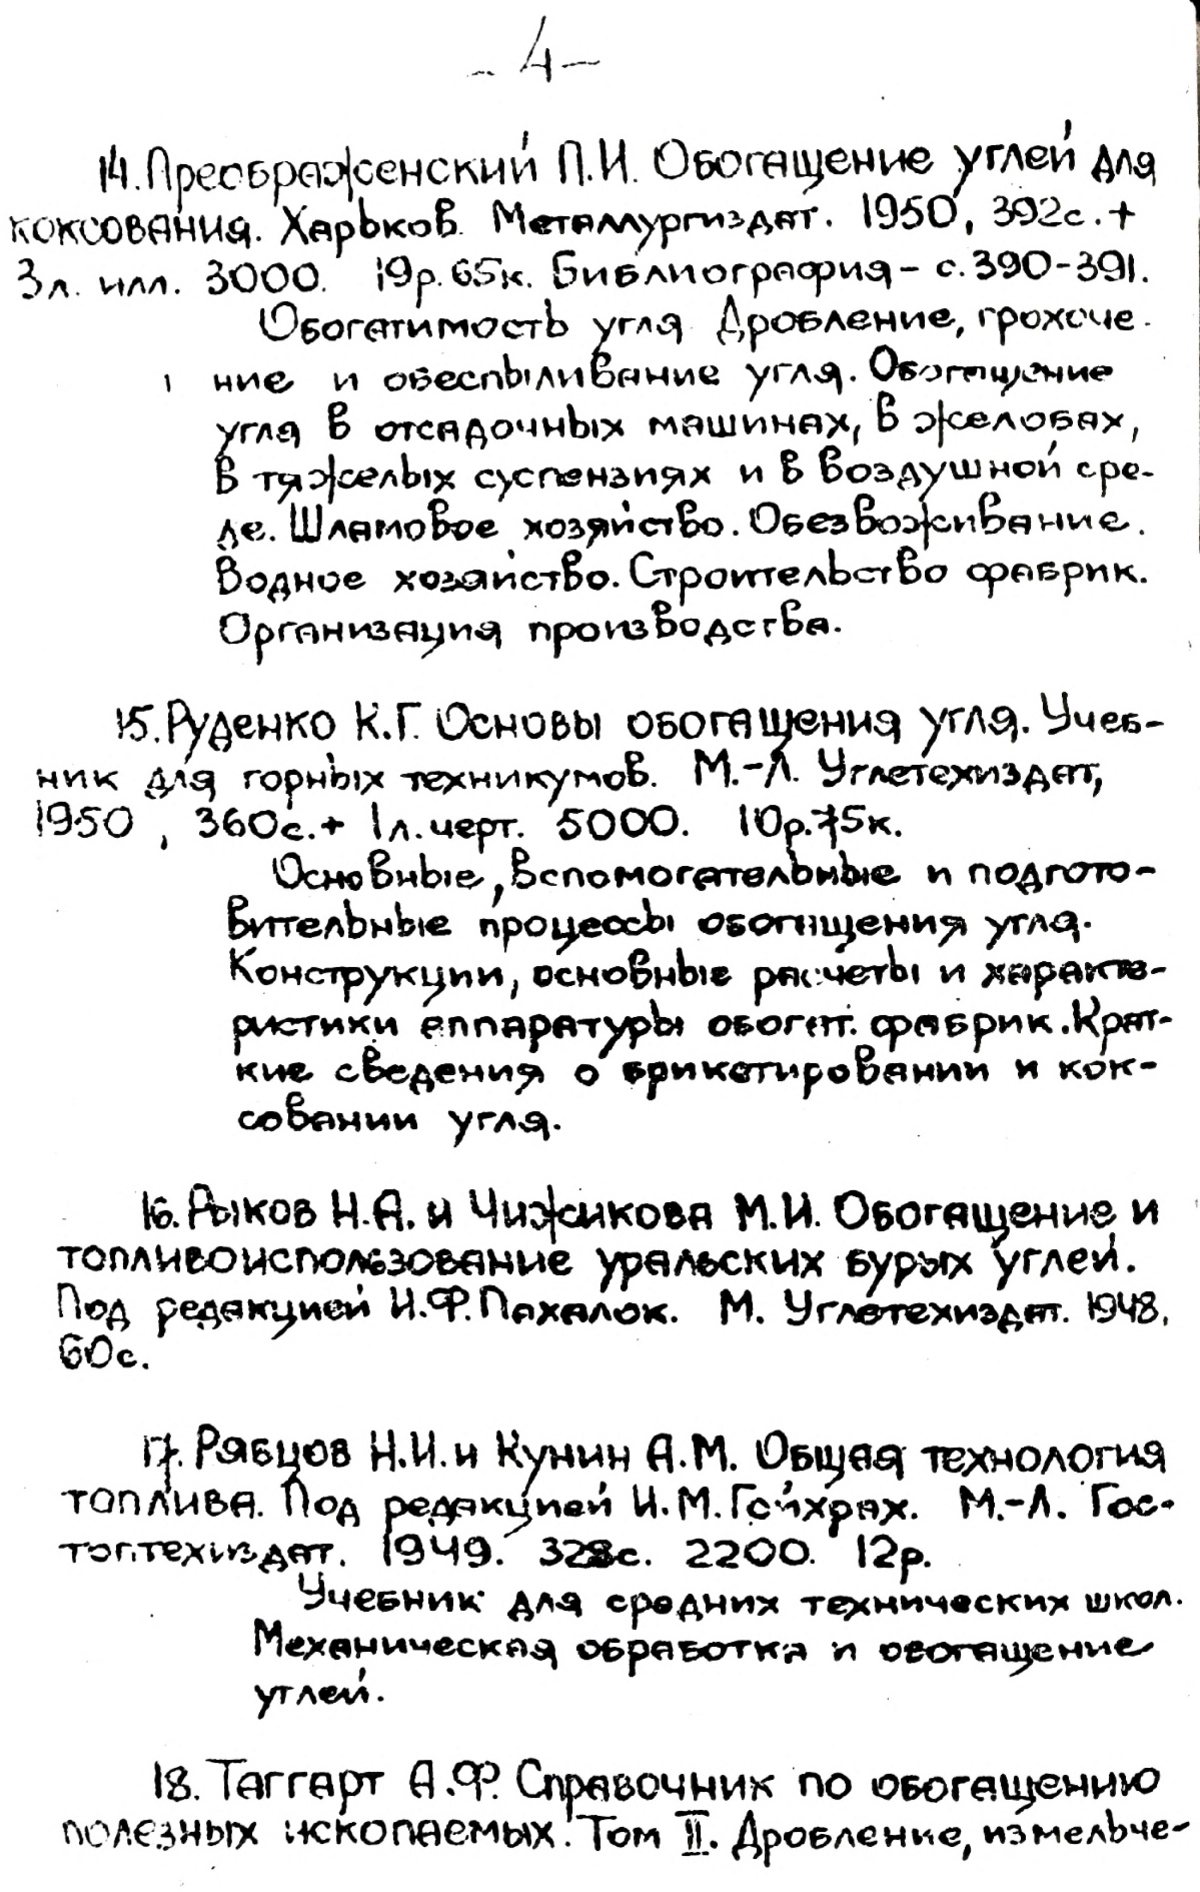 - 4 -
14. Преображенский П.И. Обогащение углей для
коксования. Харьков. Металлургиздат. 1950, 392с. +
3л. илл. 3000. 19р. 65к. Библиография - с. 390-391.
Обогатимость угля. Дробление, грохоче-
ние и обеспыливание угля. Обогащение
угля в отсадочных машинах, в желобах,
в тяжелых суспензиях и в воздушной сре-
де. Шламовое хозяйство. Обезвоживание.
Водное хозяйство. Строительство фабрик.
Организация производства.
15. Руденко К.Г. Основы обогащения угля. Учеб-
ник для горных техникумов. М.-Л. Углетехиздат,
1950, 360с. + 1л. черт. 5000. 10р. 75к.
Основные, вспомогательные и подгото-
вительные процессы обогащения угля.
Конструкции, основные расчеты и характе-
ристики аппаратуры обогат. фабрик. Крат-
кие сведения о брикетировании и кок-
совании угля.
16. Рыков Н.А. и Чижикова М.И. Обогащение и
топливоиспользование уральских бурых углей.
Под редакцией И.Ф. Пахалок. М. Углетехиздат. 1948,
60с.
17. Рябцов Н.И. и Кунин А.М. Общая технология
топлива. Под редакцией И.М. Гойхрах. М.-Л. Гос-
топтехиздат. 1949. 2200. 12р.
Учебник для средних технических школ.
Механическая обработка и обогащение
углей.
18. Таггарт А.Ф. Справочник по обогащению
полезных ископаемых. Том II. Дробление, измельче-